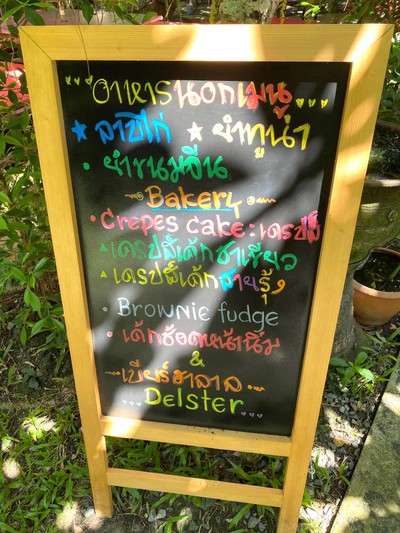 อาหารนอกเมนู...
ลาบไก่ ยำทูน่า
• ยำขนมจีน
Bakery
• Crepes cake : เครปส์
เครปส์เค้กชาเขียว
เครปส์เค้กสายรุ้ง
• Brownie fudge
• เค้กช็อคหน้านิ่ม
&
เบียร์ฮาลาล
...Delster...